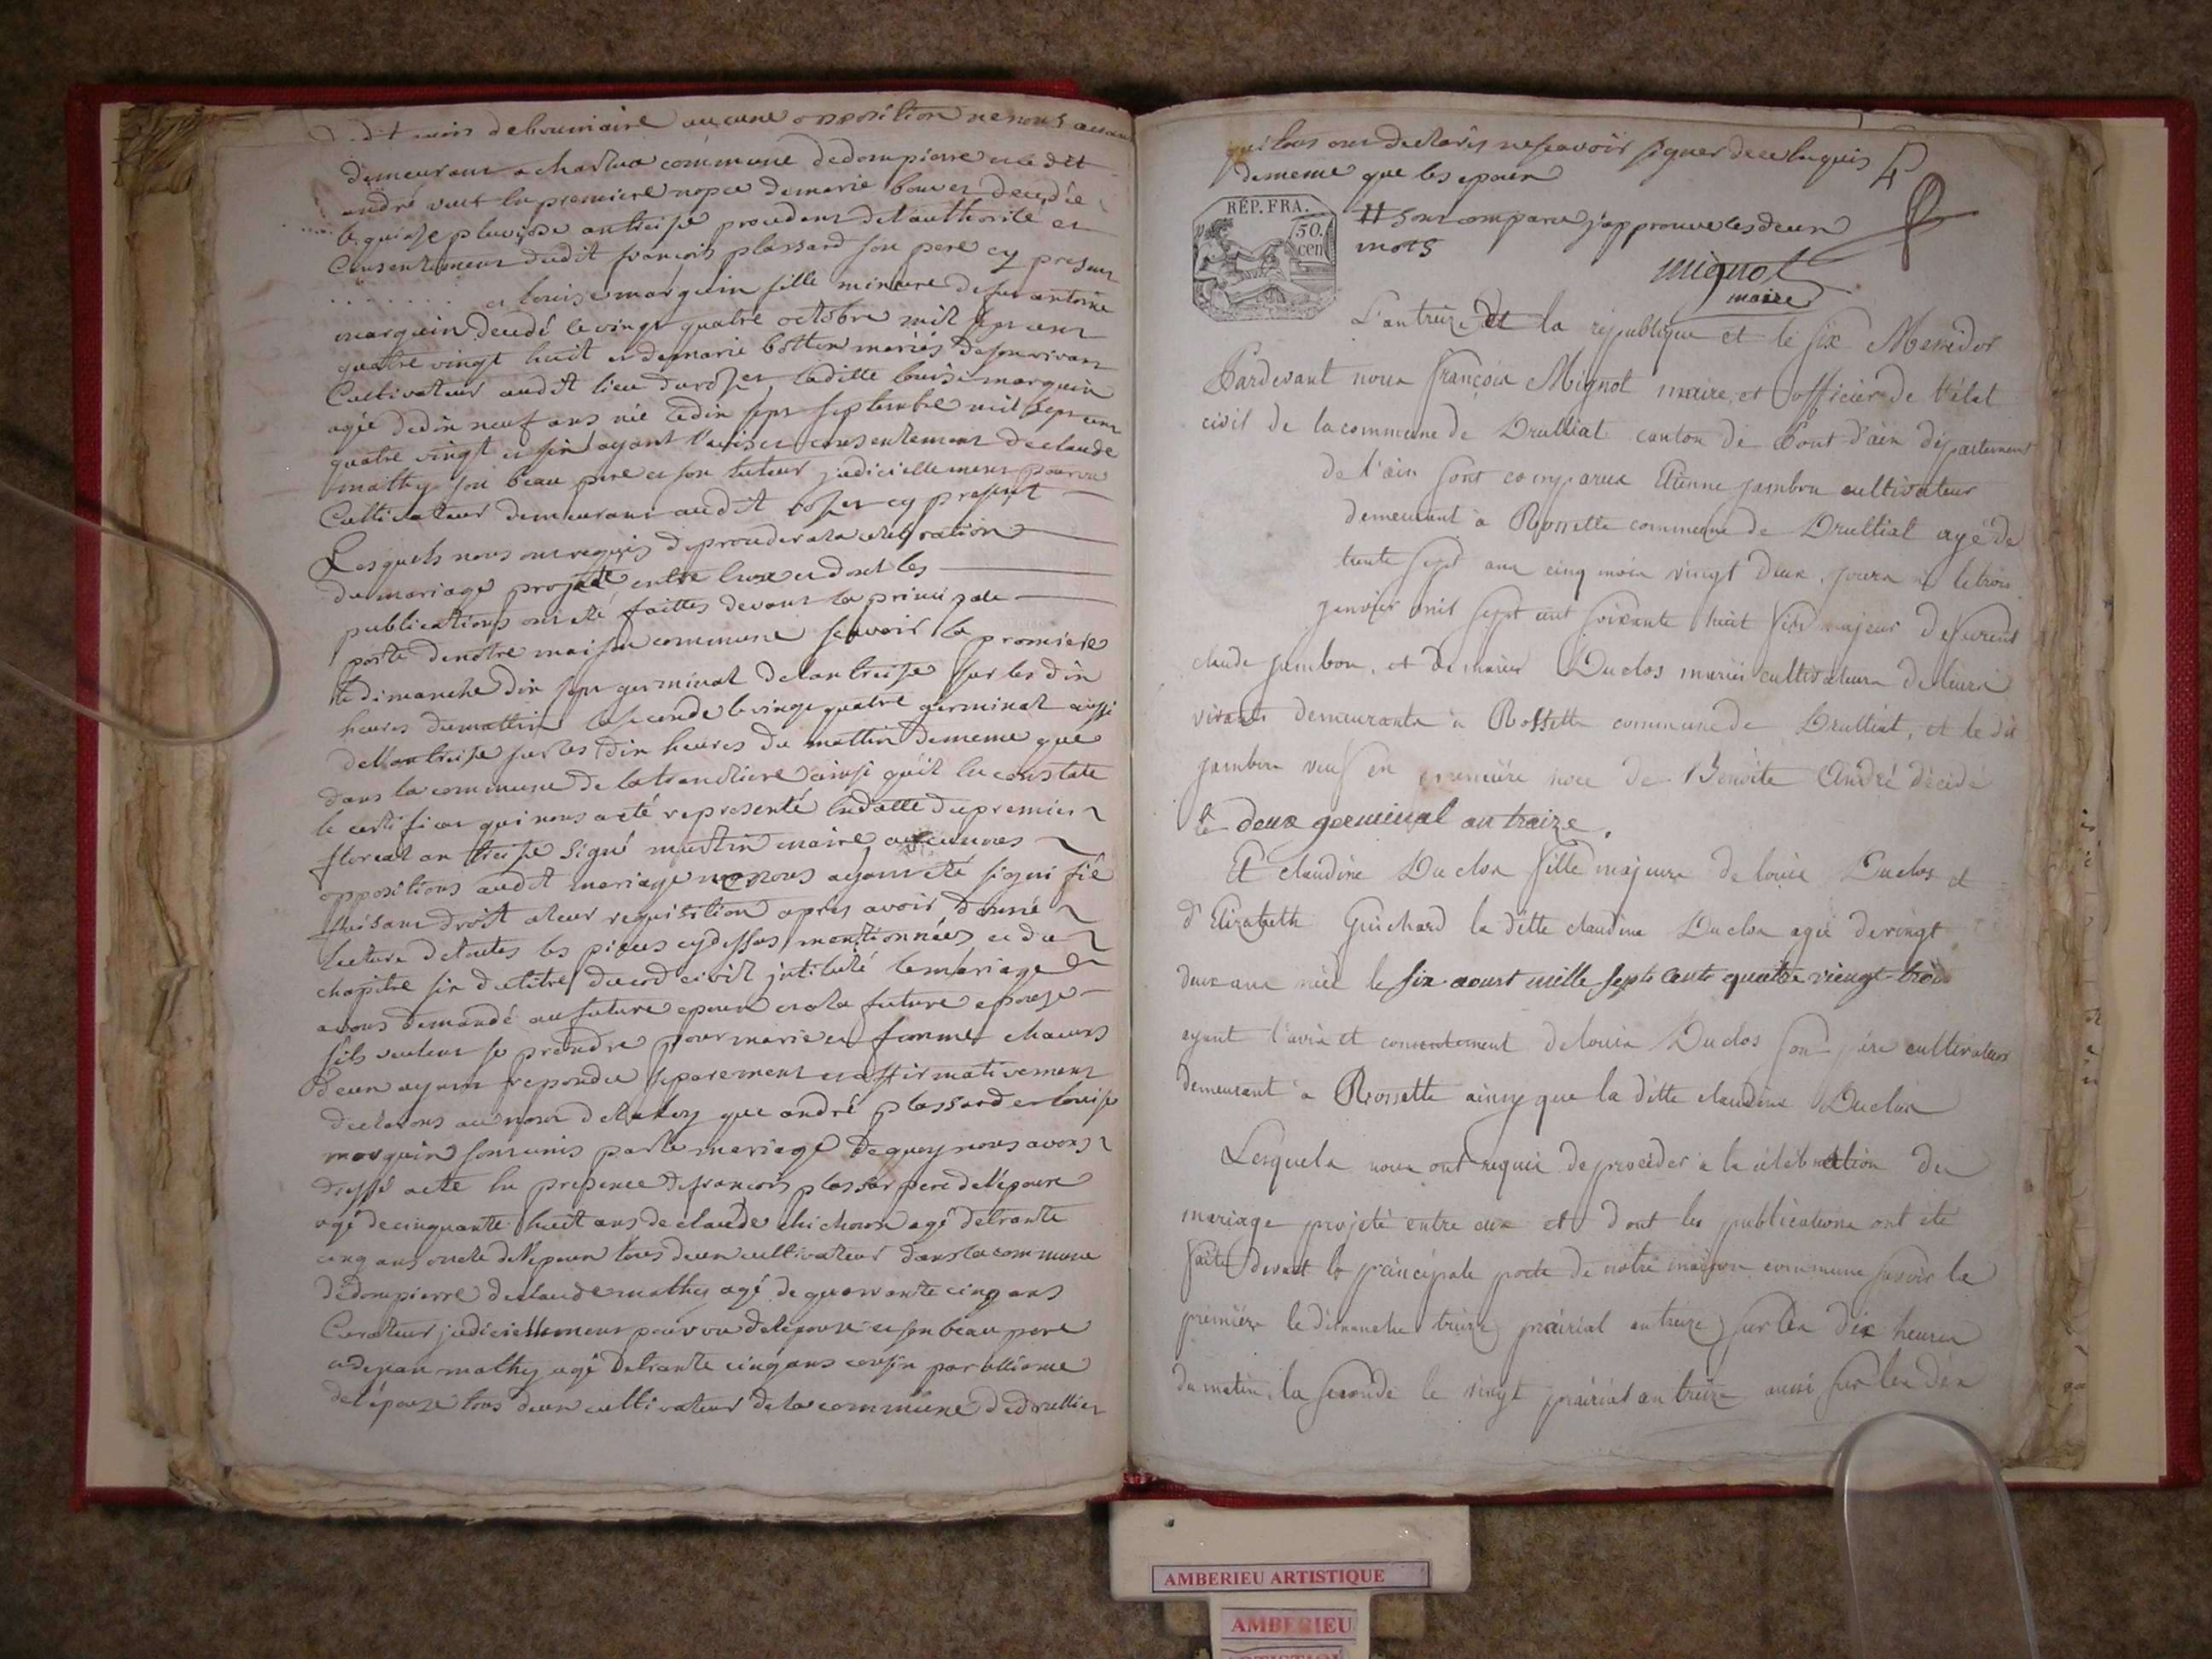 dit mois de boumaire aucune opposition ne nous
demeurant a chartua commune de dompierre et ledit
andré veuf en premiere nopce de marie bouvet decedée
le quinze pluviose an treise procedant de l'authorité et
Consentement dudit françois plassard son pere cy present
et louise marguin fille mineure de feu antoine
marguin decedé le vingt quatre octobre mil sept cent
quatre vingt huit et de marie botton mariés de son vivant
Cultivateur audit lieu ladite louise marguin
agée de dix neuf ans née le dix sept septembre mil sept cent
quatre vingt et six ayant l'avis et consentement de claude
mathy son beau pere et son tuteur judiciellement pourvu
Cultivateur demeurant audit cy present
Lesquels nous ont requis de proceder a la celebration
du mariage projetté entre eux et dont les
publications ont eté faittes devant la principale
porte de notre maison commune scavoir la premiere
le dimanche dix sept germinal de l'an treise sur les dix
heures du mattin la seconde le vingt quatre germinal aussi
de l'an treise sur les dix heures du mattin de meme que
dans la commune de la tranctiere ainsi qu'il en constate
le certificat qui nous a eté representé en datte du premier
floreal an treise signé martin maire aucunes
oppositions audit mariage ne nous ayant eté signifié
faisant droit a leur requisition apres avoir donné
Lecture de toutes les pieces cy dessus mentionnées et du
chapitre six du titre du cod civil intitulé le mariage
avons demandé au future epoux et a la future epouse
s'ils veulent se prendre pour marie et femme chacuns
d'eux ayant repondu separement et affirmativement
declarons au nom de la loy que andré plassard et louise
marguin sont unis par le mariage de quoy nous avons
dressé acte en presence de françois plassar pere de l'epoux
agé de cinquante huit ans de claude chichoux agé de trante
cinq ans oncle de l'epoux tous deux cultivateur dans la commune
de dompierre de claude mathy agé de quarante cinq ans
Curateur judiciellement pourvu de l'epouse et son beau pere
et de jean mathy agé de trante cinq ans cousin par alliance
de l'épouse tous deux cultivateur de la commune de druillier
qui tous ont declarés ne scavoir signer de ce enquis
de meme que les epoux
4
RÉP. FRA.
50.
cen
++ sont comparu j'approuve les deux
mots
mignol
maire
L'an treize de la république et le six Messidor
Pardevant nous françois Mignot maire et officier de l'état
civil de la commune de Druillat canton de Pont d'ain département
de l'ain sont comparus Etienne jambon cultivateur
demeurant à Rossette commune de Druillat agé de
trente sept ans cinq mois vingt deux jours né le trois
janvier mil sept cent soixante huit fils majeur de furent
claude jambon, et de marie Duclos mariés cultivateurs de leurs
vivants demeurants à Rossette commune de Druillat, et le dit
jambon veuf en première noce de Benoite André décédé
le deux germinal an traize.
Et claudine Duclos fille majeure de louis Duclos et
d'Elizabeth Guichard la ditte claudine Duclos agée de vingt
deux ans née le six aoust mille sept cents quatre viengt trois
ayant l'avis et consentement de louis Duclos son père cultivateur
demeurant à Rossette ainsy que la ditte claudine Duclos
Lesquels nous ont requis de proceder à la célébration du
mariage projeté entre eux et dont les publications ont été
faite devant la principale porte de notre maison commune savoir la
première le dimanche treize prairial an treize sur les dix heures
du matin, la seconde le vingt prairial an treize aussi sur les dix
AMBERIEU ARTISTIQUE
AMBERIEU
ARTISTIQUE